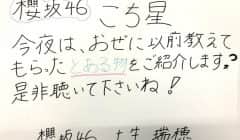 櫻坂46 こち星
今夜は、おぜに以前教えて
もらったとある物をご紹介します。
是非聴いて下さいね!
櫻坂46 土生 瑞穂